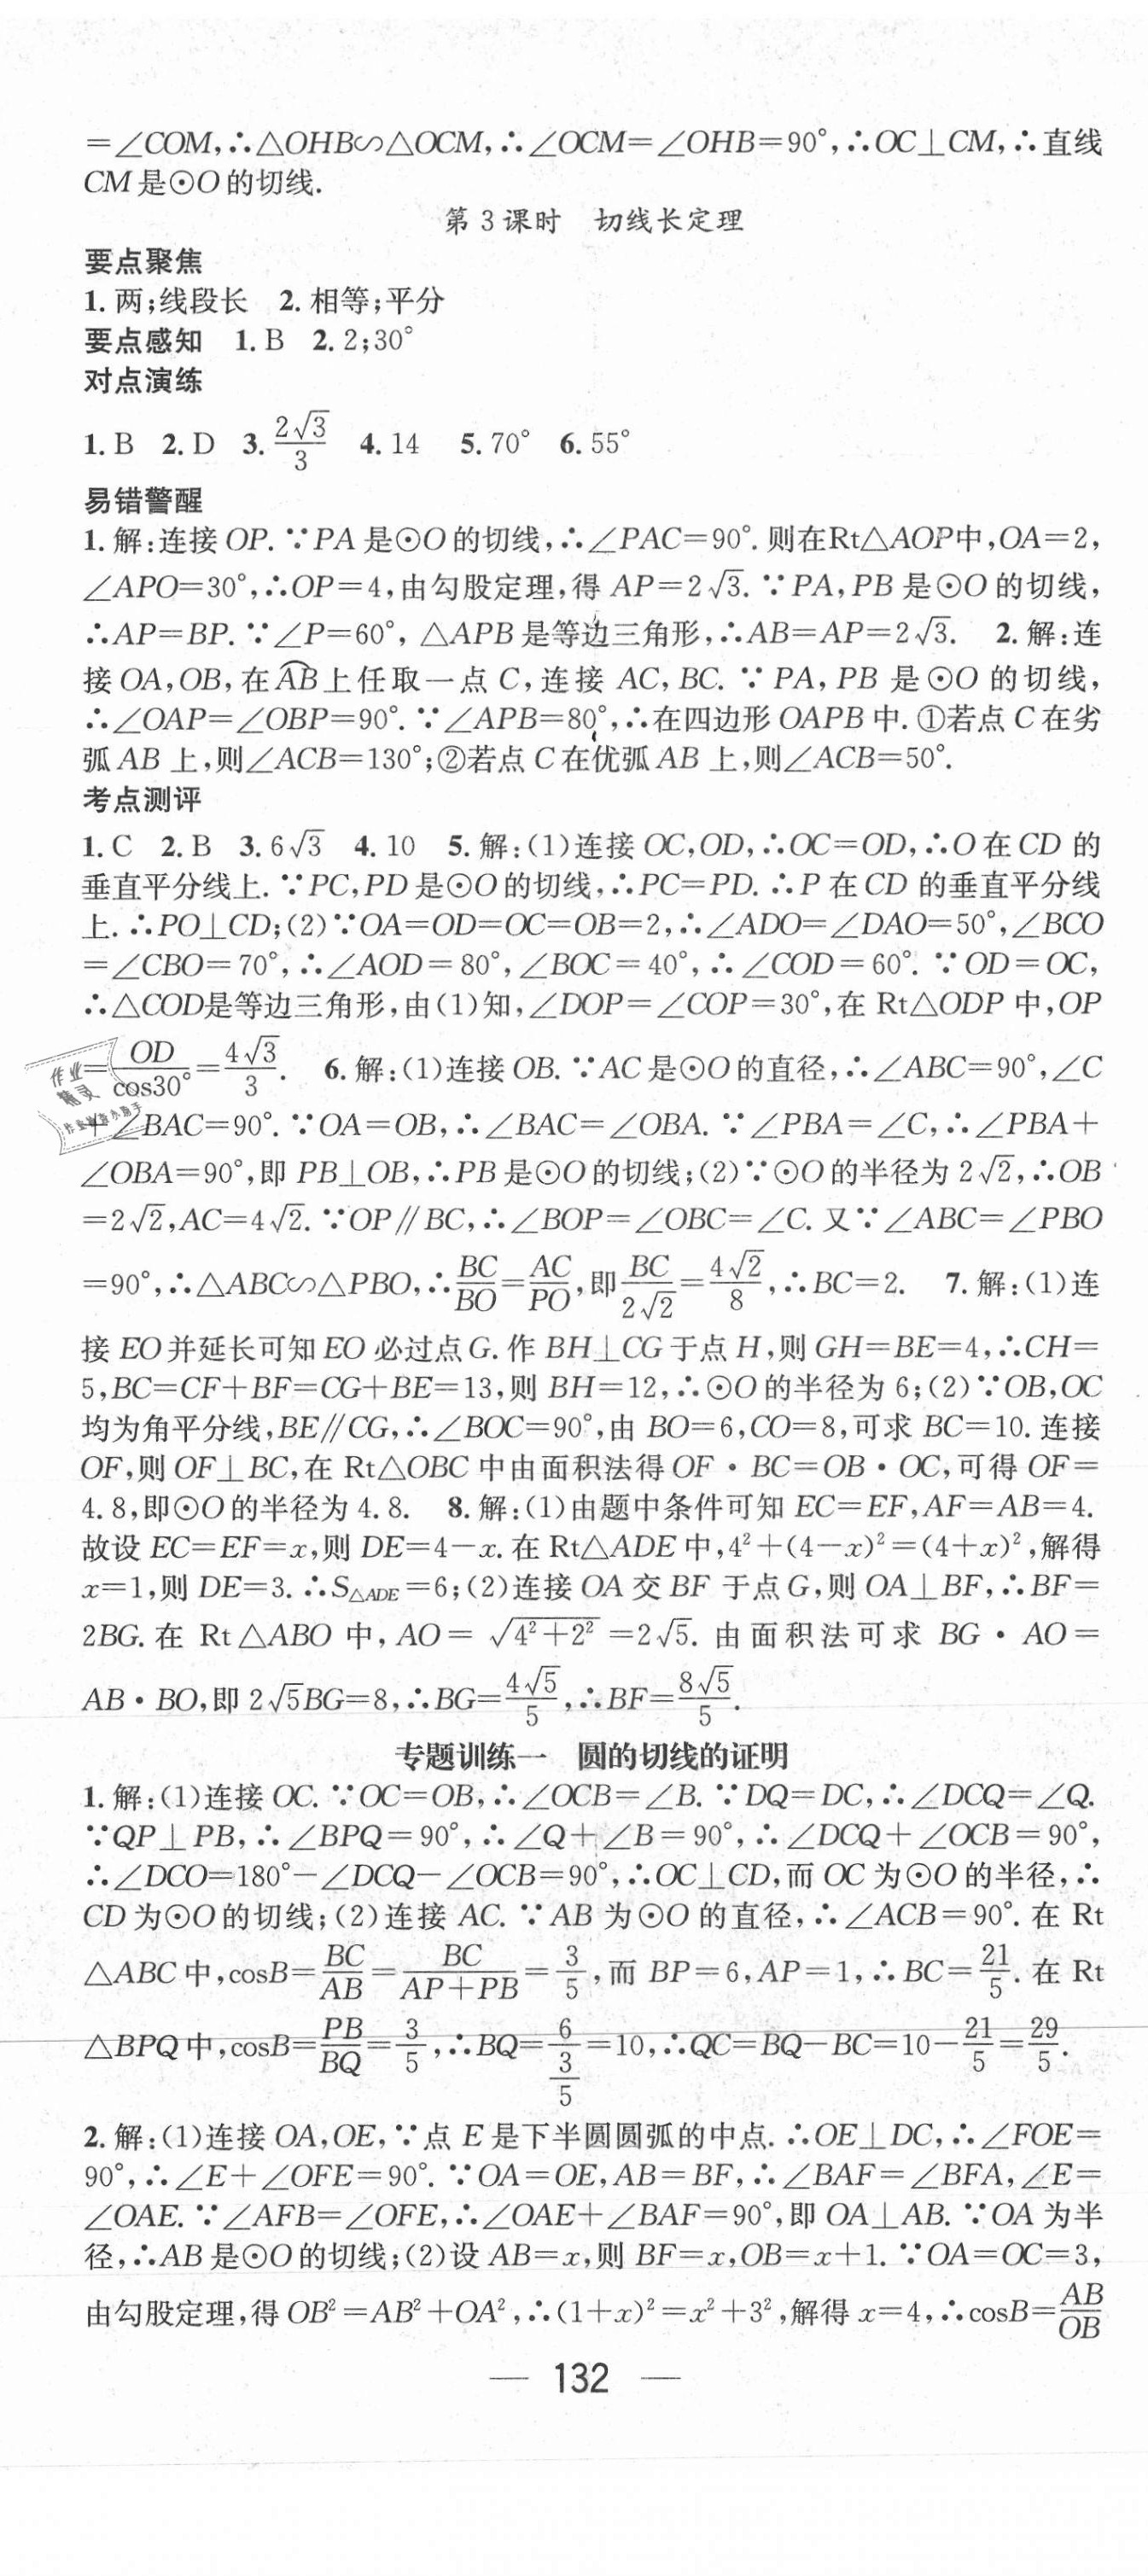 =∠COM,∴△OHB∽△OCM,∴∠OCM=∠OHB=90°,∴OC⊥CM,∴直线
CM是⊙O的切线.
第3课时 切线长定理
要点聚焦
1. 两;线段长 2. 相等;平分
要点感知 1. B 2. 2;30°
对点演练
1. B 2. D 3. 2√3/3 4. 14 5. 70° 6. 55°
易错警醒
1. 解:连接OP. ∵PA是⊙O的切线,∴∠PAC=90°. 则在Rt△AOP中,OA=2,
∠APO=30°,∴OP=4,由勾股定理,得AP=2√3. ∵PA,PB是⊙O的切线,
∴AP=BP. ∵∠P=60°,△APB是等边三角形,∴AB=AP=2√3. 2. 解:连
接OA,OB,在⌒AB上任取一点C,连接AC,BC. ∵PA,PB是⊙O的切线,
∴∠OAP=∠OBP=90°. ∵∠APB=80°,∴在四边形OAPB中. ①若点C在劣
弧AB上,则∠ACB=130°;②若点C在优弧AB上,则∠ACB=50°.
考点测评
1. C 2. B 3. 6√3 4. 10 5. 解:(1)连接OC,OD,∴OC=OD,∴O在CD的
垂直平分线上. ∵PC,PD是⊙O的切线,∴PC=PD. ∴P在CD的垂直平分线
上. ∴PO⊥CD;(2)∵OA=OD=OC=OB=2,∴∠ADO=∠DAO=50°,∠BCO
=∠CBO=70°,∴∠AOD=80°,∠BOC=40°,∴∠COD=60°. ∵OD=OC,
∴△COD是等边三角形,由(1)知,∠DOP=∠COP=30°,在Rt△ODP中,OP
=OD/cos30°=4√3/3. 6. 解:(1)连接OB. ∵AC是⊙O的直径,∴∠ABC=90°,∠C
+∠BAC=90°. ∵OA=OB,∴∠BAC=∠OBA. ∵∠PBA=∠C,∴∠PBA+
∠OBA=90°,即PB⊥OB,∴PB是⊙O的切线;(2)∵⊙O的半径为2√2,∴OB
=2√2,AC=4√2. ∵OP∥BC,∴∠BOP=∠OBC=∠C. 又∵∠ABC=∠PBO
=90°,∴△ABC∽△PBO,∴BC/BO=AC/PO,即BC/2√2=4√2/8,∴BC=2. 7. 解:(1)连
接EO并延长可知EO必过点G. 作BH⊥CG于点H,则GH=BE=4,∴CH=
5,BC=CF+BF=CG+BE=13,则BH=12,∴⊙O的半径为6;(2)∵OB,OC
均为角平分线,BE∥CG,∴∠BOC=90°,由BO=6,CO=8,可求BC=10. 连接
OF,则OF⊥BC,在Rt△OBC中由面积法得OF·BC=OB·OC,可得OF=
4.8,即⊙O的半径为4.8. 8. 解:(1)由题中条件可知EC=EF,AF=AB=4.
故设EC=EF=x,则DE=4-x. 在Rt△ADE中,4²+(4-x)²=(4+x)²,解得
x=1,则DE=3. ∴S△ADE=6;(2)连接OA交BF于点G,则OA⊥BF,∴BF=
2BG. 在Rt△ABO中,AO=√(4²+2²)=2√5. 由面积法可求BG·AO=
AB·BO,即2√5BG=8,∴BG=4√5/5,∴BF=8√5/5.
专题训练一 圆的切线的证明
1. 解:(1)连接OC. ∵OC=OB,∴∠OCB=∠B. ∵DQ=DC,∴∠DCQ=∠Q.
∵QP⊥PB,∴∠BPQ=90°,∴∠Q+∠B=90°,∴∠DCQ+∠OCB=90°,
∴∠DCO=180°-∠DCQ-∠OCB=90°,∴OC⊥CD,而OC为⊙O的半径,∴
CD为⊙O的切线;(2)连接AC. ∵AB为⊙O的直径,∴∠ACB=90°. 在Rt
△ABC中,cosB=BC/AB=BC/(AP+PB)=3/5,而BP=6,AP=1,∴BC=21/5. 在Rt
△BPQ中,cosB=PB/BQ=3/5,∴BQ=6/(3/5)=10,∴QC=BQ-BC=10-21/5=29/5.
2. 解:(1)连接OA,OE,∵点E是下半圆圆弧的中点. ∴OE⊥DC,∴∠FOE=
90°,∴∠E+∠OFE=90°. ∵OA=OE,AB=BF,∴∠BAF=∠BFA,∠E=
∠OAE. ∵∠AFB=∠OFE,∴∠OAE+∠BAF=90°,即OA⊥AB. ∵OA为半
径,∴AB是⊙O的切线;(2)设AB=x,则BF=x,OB=x+1. ∵OA=OC=3,
由勾股定理,得OB²=AB²+OA²,∴(1+x)²=x²+3²,解得x=4,∴cosB=AB/OB
— 132 —
作业
精灵